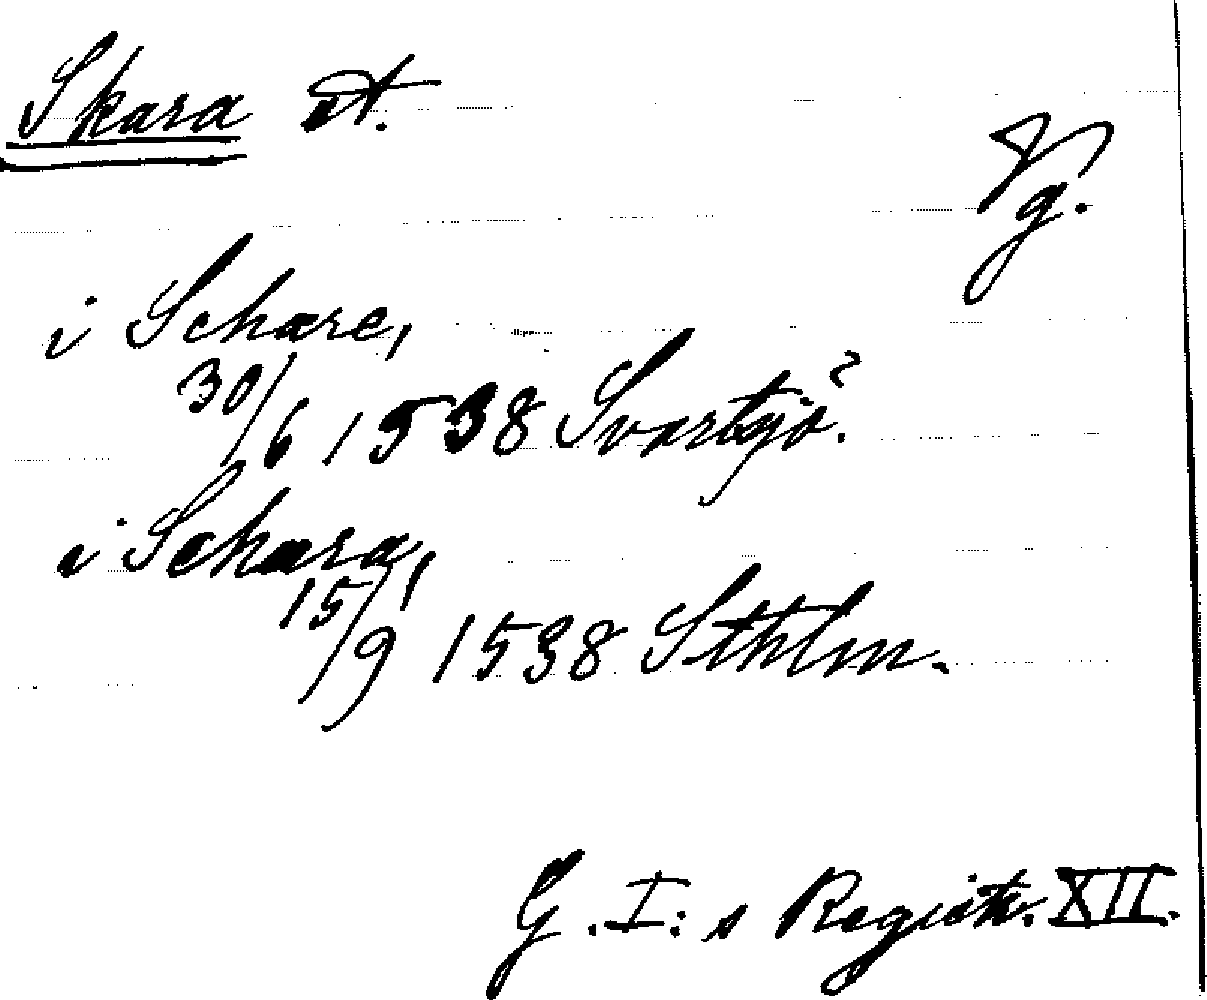 Skara st.
Vg.
i Schare,
30/6 1538 Svartsjö?
i Schara,
15/9 1538 Sthlm.
G. I:s Registr. XII.